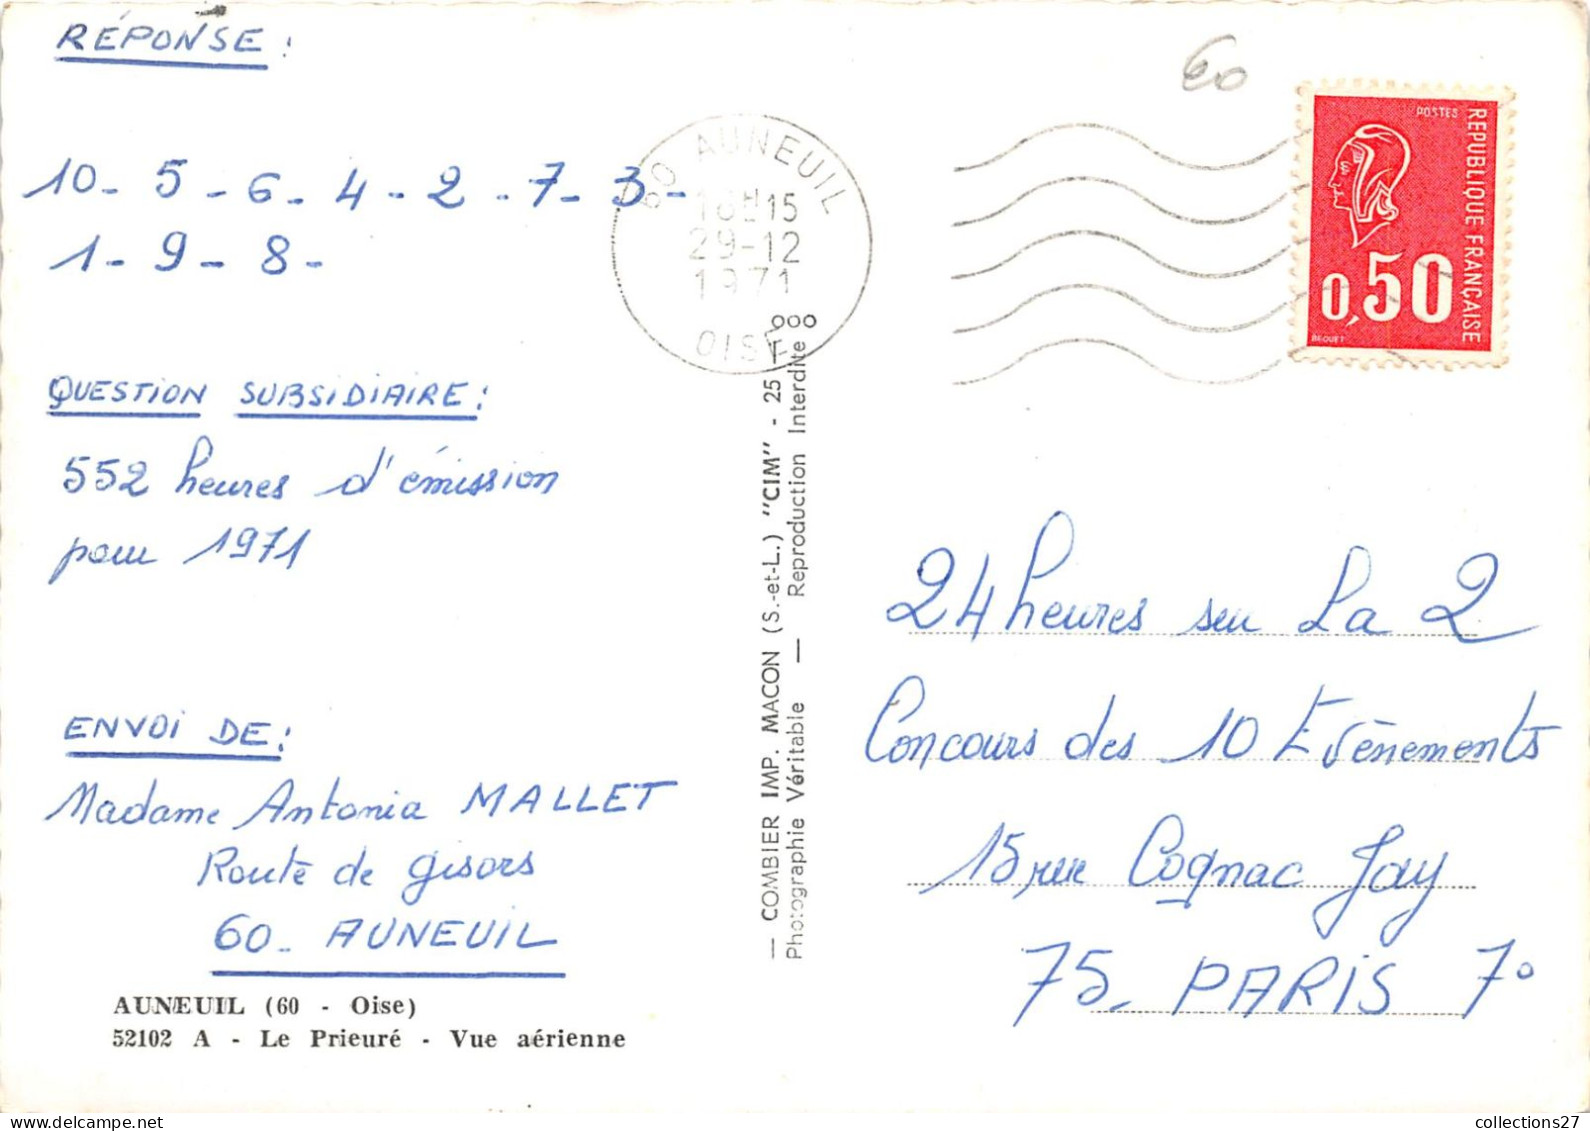 RÉPONSE :
10 - 5 - 6 - 4 - 2 - 7 - 3 -
1 - 9 - 8 -
QUESTION SUBSIDIAIRE :
552 heures d'émission
pour 1971
ENVOI DE :
Madame Antonia MALLET
Route de Gisors
60 - AUNEUIL
AUNEUIL (60 - Oise)
52102 A - Le Prieuré - Vue aérienne
— COMBIER IMP. MACON (S.-et-L.) "CIM" - 25
Photographie Véritable — Reproduction Interdite
60 AUNEUIL
18H15
29-12
1971
OISE
60
POSTES
REPUBLIQUE FRANÇAISE
0,50
BEQUET
24 heures sur La 2
Concours des 10 Evènements
15 rue Cognac Jay
75 - PARIS 7°
collections27